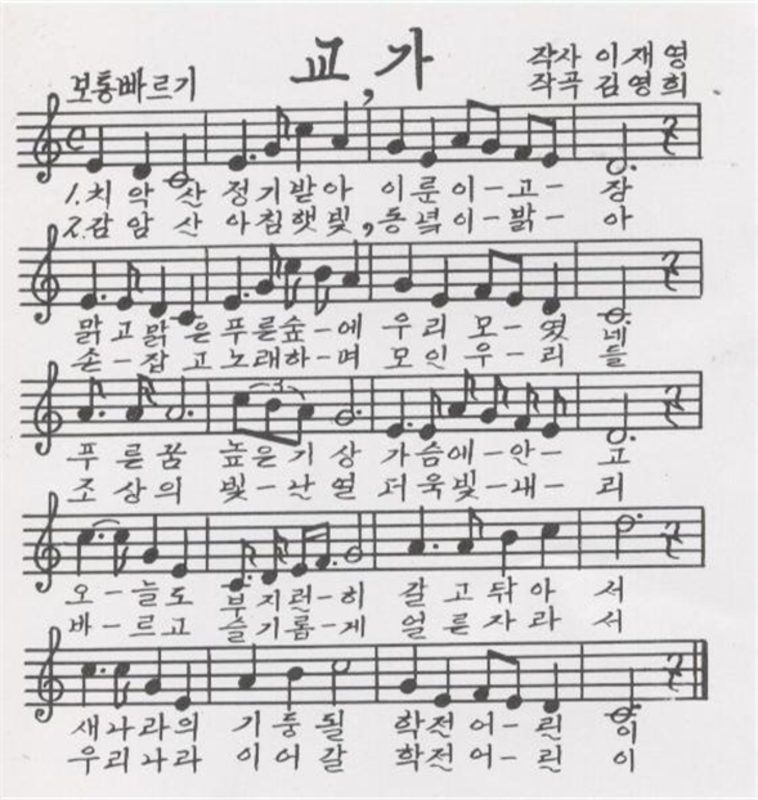 교가
작사 이재영
보통빠르기
작곡 김영희
1.치 악 산 정기받아 이룬이-고- 장
2.감 암 산 아침햇빛, 동녘이-밝- 아
맑고맑은푸른숲-에 우리 모-였 네
손-잡고노래하-며 모인우-리 들
3
푸 른 꿈 높은기상 가슴에-안- 고
조상의 빛-난얼 더욱빛-내- 리
오-늘도 부지런-히 갈고닦아 서
바-르고 슬기롭-게 얼른자라 서
새나라의 기둥될 학전어-린 이
우리나라 이어갈 학전어-린 이